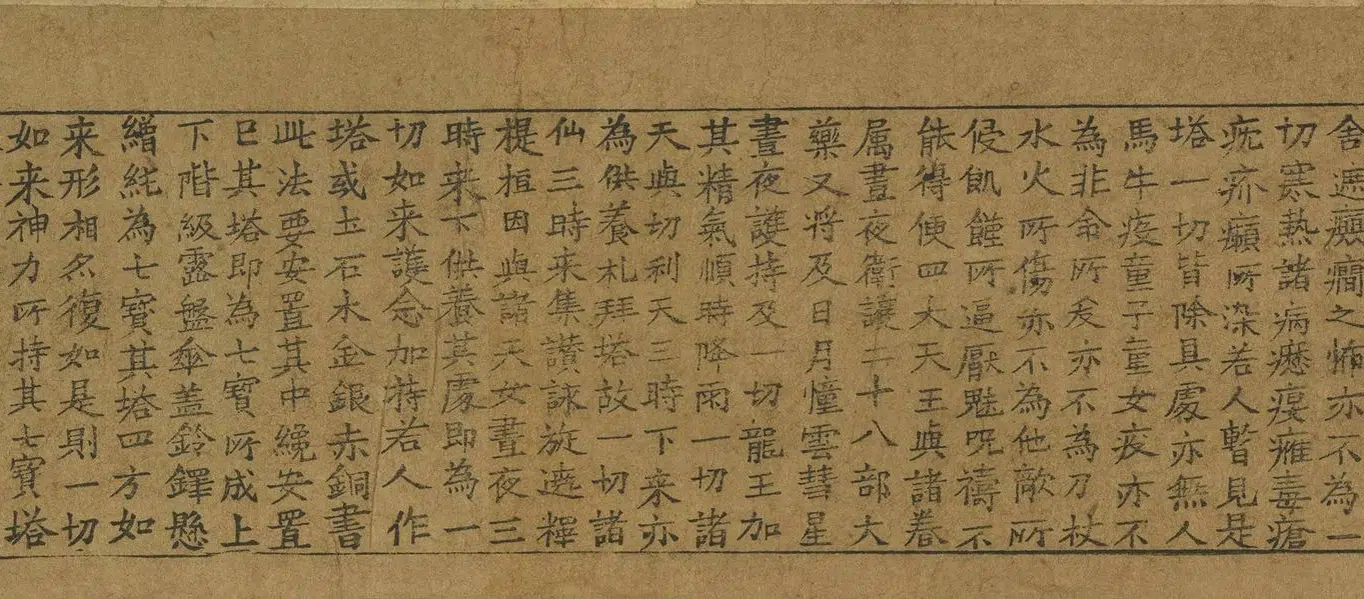 舍遮癲癎之怖亦不為一
切寒熱諸病癧瘻癰毒瘡
疣疥癩所染若人暫見是
塔一切皆除其處亦無人
馬牛疫童子童女疫亦不
為非命所夭亦不為刀杖
水火所傷亦不為他敵所
侵飢饉所逼厭魅呪禱不
能得便四大天王與諸眷
属晝夜衛護二十八部大
藥叉將及日月憧雲彗星
晝夜護持及一切龍王加
其精氣順時降雨一切諸
天與切利天三時下来亦
為供養礼拜塔故一切諸
仙三時来集讃詠旋遶釋
提桓因與諸天女晝夜三
時来下供養其處即為一
切如来護念加持若人作
塔或土石木金銀赤銅書
此法要安置其中纔安置
已其塔即為七寶所成上
下階級露盤傘盖鈴鐸懸
繒純為七寶其塔四方如
来形相亦復如是則一切
如来神力所持其七寶塔